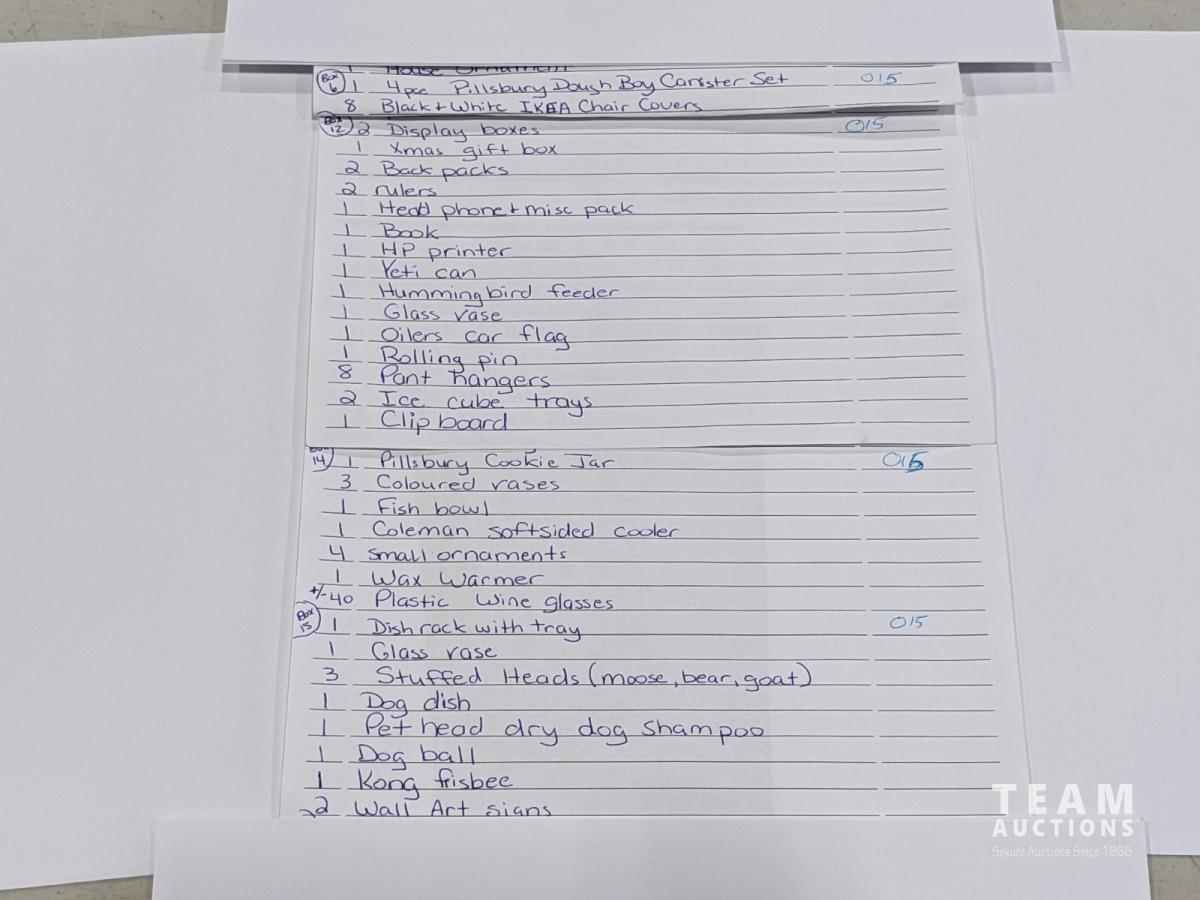 1 House Ornament
Box 6 1 4pce Pillsbury Dough Boy Canister Set 015
8 Black + White IKEA Chair Covers
Box 12 2 Display boxes 015
1 Xmas gift box
2 Back packs
2 rulers
1 Head phone + misc pack
1 Book
1 HP printer
1 Yeti can
1 Hummingbird feeder
1 Glass vase
1 Oilers car flag
1 Rolling pin
8 Pant hangers
2 Ice cube trays
1 Clip board
Box 14 1 Pillsbury Cookie Jar 015
3 Coloured vases
1 Fish bowl
1 Coleman softsided cooler
4 small ornaments
1 Wax Warmer
+/- 40 Plastic Wine glasses
Box 15 1 Dish rack with tray 015
1 Glass vase
3 Stuffed Heads (moose, bear, goat)
1 Dog dish
1 Pet head dry dog shampoo
1 Dog ball
1 Kong frisbee
2 Wall Art signs
TEAM
AUCTIONS
Sekura Auctions Since 1966